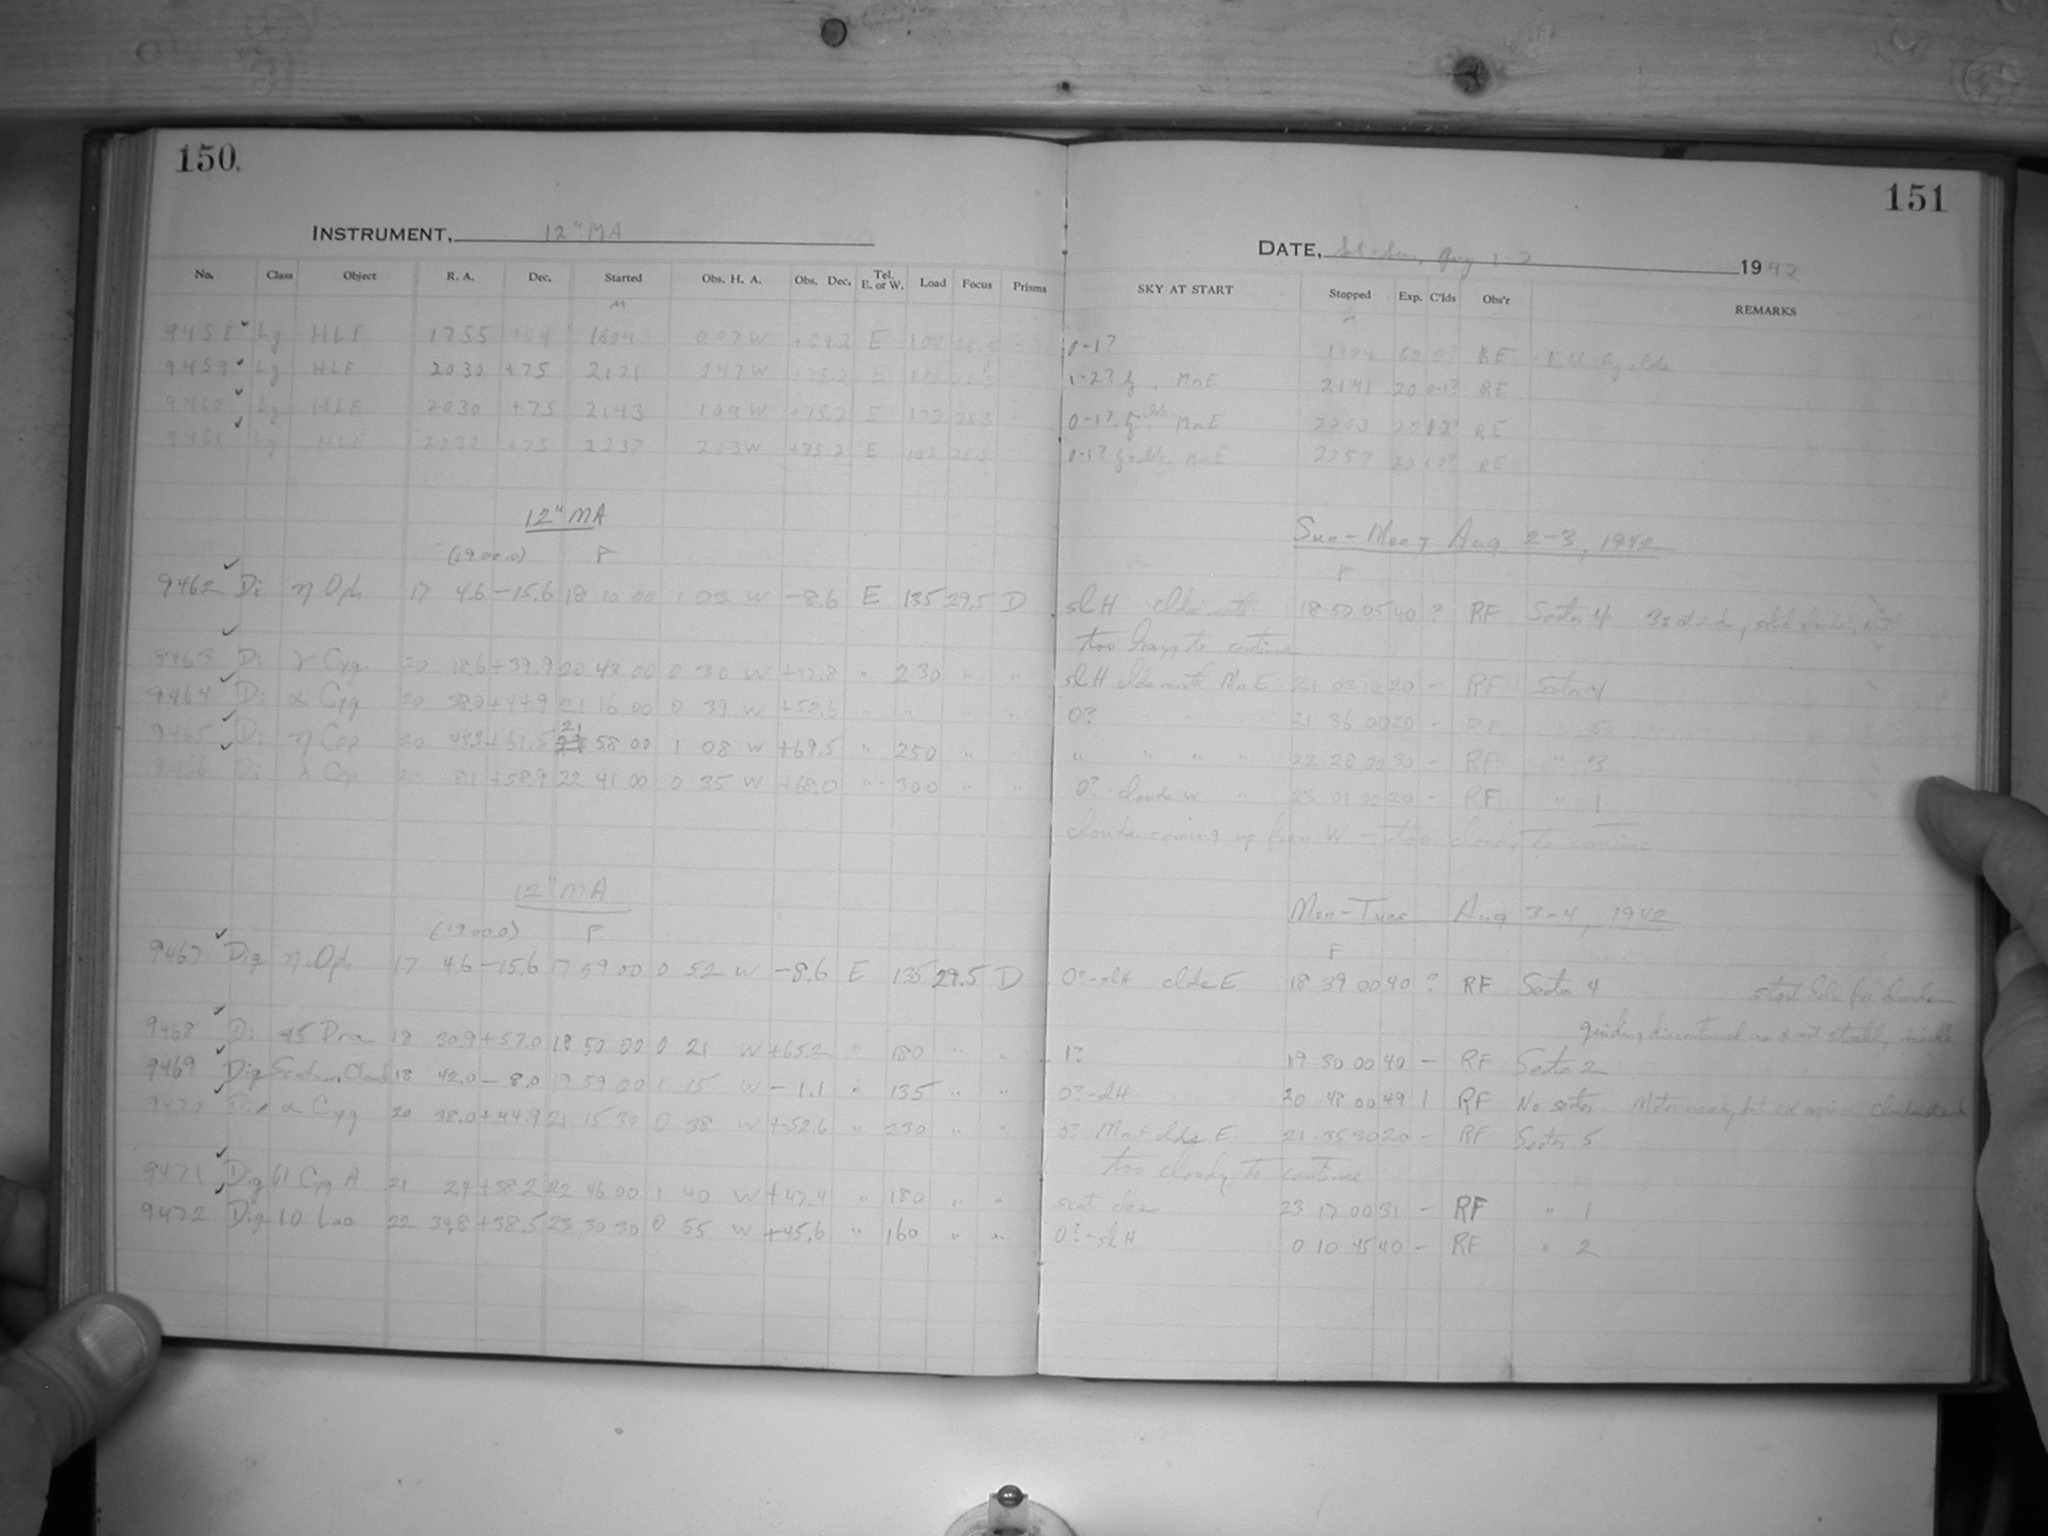 150.
INSTRUMENT, 12" MA
No. Class Object R. A. Dec. Started Obs. H. A. Obs. Dec. Tel. E. or W. Load Focus Prisms
9458 Lg HLF 1755 1804 007 W E 100
9459 Lg HLF 2030 +75 2121 047 W +75.2 E
9460 Lg HLF 2030 +75 2143 109 W +75.2 E 102 28.5
9461 Lg HLF 2030 +75 2237 203 W +75.2 E 102 28.5
12" MA
(1900.0) P
9462 Di η Oph 17 4.6 -15.6 18 10 00 1 03 W -8.6 E 135 29.5 D
9463 Di γ Cyg 20 18.6 +39.9 20 43 00 0 30 W +47.8 " 230 " "
9464 Di α Cyg 20 38.0 +44.9 21 16 00 0 39 W +52.6 " " " "
9465 Di η Cep 20 43.3 +61.5 21 58 00 1 08 W +69.5 " 250 " "
9466 Di Cep +58.9 22 41 00 0 35 W " 300 " "
12" MA
(1900.0) P
9467 Dig η Oph 17 4.6 -15.6 17 59 00 0 52 W -8.6 E 135 29.5 D
9468 Di 45 Dra 18 30.9 +57.0 18 50 00 0 21 W +65.2 " 180 " "
9469 Dig Scutum Cloud 18 42.0 - 8.0 19 59 00 1 15 W - 1.1 " 135 " "
9470 Di α Cyg 20 38.0 +44.9 21 15 30 0 38 W +52.6 " 230 " "
9471 Dig 61 Cyg A 21 2.4 +38.2 22 46 00 1 40 W +47.4 " 180 " "
9472 Dig 10 Lac 22 34.8 +38.5 23 30 30 0 55 W +45.6 " 160 " "
151
DATE, Sat-Sun, Aug 1-2 1942
SKY AT START Stopped Exp. C'lds Obs'r REMARKS
0-1? 1904 60 0? BE
1-2? MnE 2141 20 0-1? BE
0-1? MnE 2203 20 1-2? BE
0-1? MnE 2257 20 BE
Sun-Mon, Aug 2-3, 1942
P
sl H clds north 18 50 05 40 ? RF Sector 4
too hazy to continue
sl H clds north Mn E 21 03 10 20 - RF Sector 4
0? " " " 21 36 00 20 - RF " 5
" " " " " 22 28 00 30 - RF " 3
0? clouds W " 23 01 00 20 - RF " 1
clouds coming up from W - too cloudy to continue
Mon-Tues Aug 3-4, 1942
P
0?-slH clds E 18 39 00 40 ? RF Sector 4
1? 19 30 00 40 - RF Sector 2
0?-slH 20 48 00 49 1 RF No sector.
0? Mn + clds E. 21 35 30 20 - RF Sector 5
too cloudy to continue
scat clds 23 17 00 31 - RF " 1
0?-slH 0 10 45 40 - RF " 2